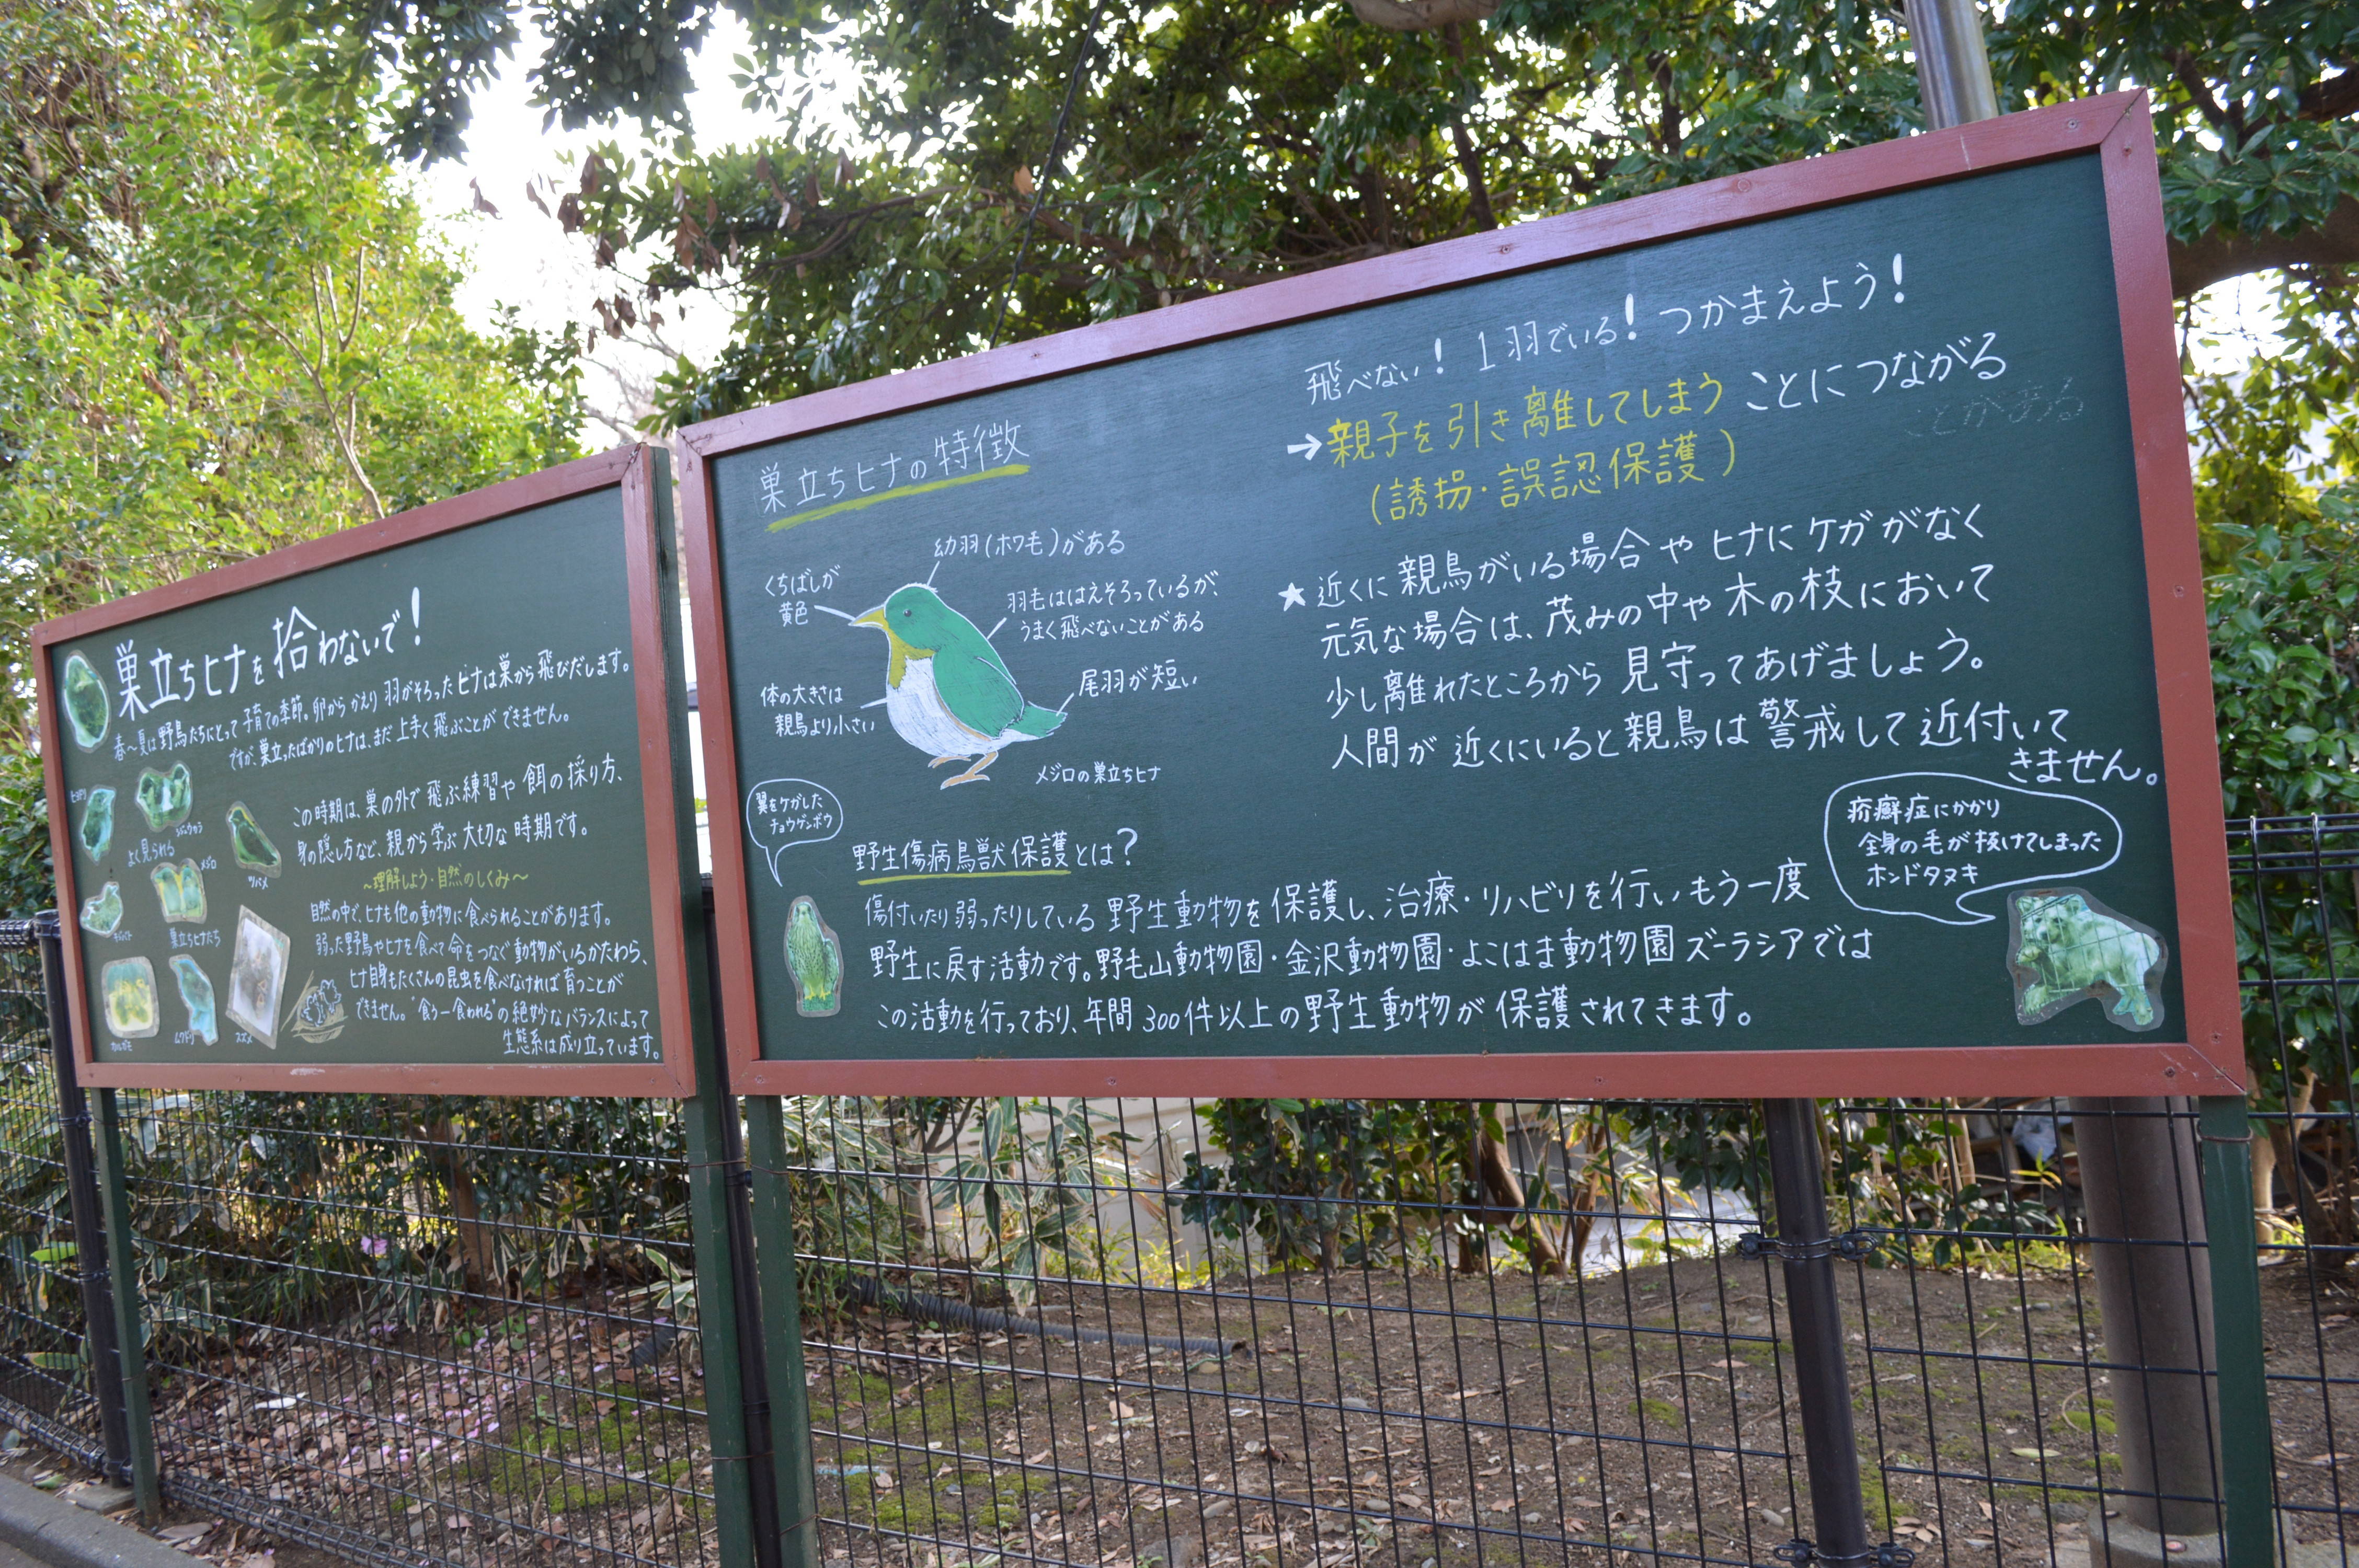 巣立ちヒナを拾わないで!
春〜夏は野鳥たちにとって子育ての季節。卵からかえり羽がそろったヒナは巣から飛びだします。
ですが、巣立ったばかりのヒナは、まだ上手く飛ぶことができません。
この時期は、巣の外で飛ぶ練習や餌の採り方、
身の隠し方など、親から学ぶ大切な時期です。
〜理解しよう・自然のしくみ〜
自然の中で、ヒナも他の動物に食べられることがあります。
弱った野鳥やヒナを食べて命をつなぐ動物がいるかたわら、
ヒナ自身もたくさんの昆虫を食べなければ育つことが
できません。"食う―食われる"の絶妙なバランスによって
生態系は成り立っています。
ヒヨドリ
シジュウカラ
よく見られる
メジロ
ツバメ
巣立ちヒナたち
カルガモ
ムクドリ
スズメ
巣立ちヒナの特徴
幼羽(ホワ毛)がある
くちばしが
黄色
羽毛ははえそろっているが、
うまく飛べないことがある
体の大きさは
親鳥より小さい
尾羽が短い
メジロの巣立ちヒナ
飛べない! 1羽でいる! つかまえよう!
→親子を引き離してしまうことにつながる
ことがある
(誘拐・誤認保護)
★近くに親鳥がいる場合やヒナにケガがなく
元気な場合は、茂みの中や木の枝において
少し離れたところから見守ってあげましょう。
人間が近くにいると親鳥は警戒して近付いて
きません。
翼をケガした
チョウゲンボウ
野生傷病鳥獣保護とは?
傷付いたり弱ったりしている野生動物を保護し、治療・リハビリを行いもう一度
野生に戻す活動です。野毛山動物園・金沢動物園・よこはま動物園ズーラシアでは
この活動を行っており、年間300件以上の野生動物が保護されてきます。
疥癬症にかかり
全身の毛が抜けてしまった
ホンドタヌキ